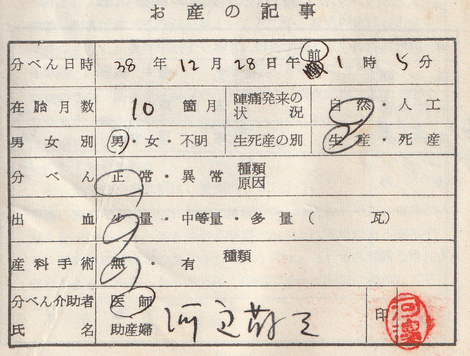 お産の記事
分べん日時 38年12月28日午前1時5分
在胎月数 10箇月 陣痛発来の状況 自然・人工
男女別 男・女・不明 生死産の別 生産・死産
分べん 正常・異常 種類 原因
出血 少量・中等量・多量( 瓦)
産科手術 無・有 種類
分べん介助者 医師
氏名 助産婦 印